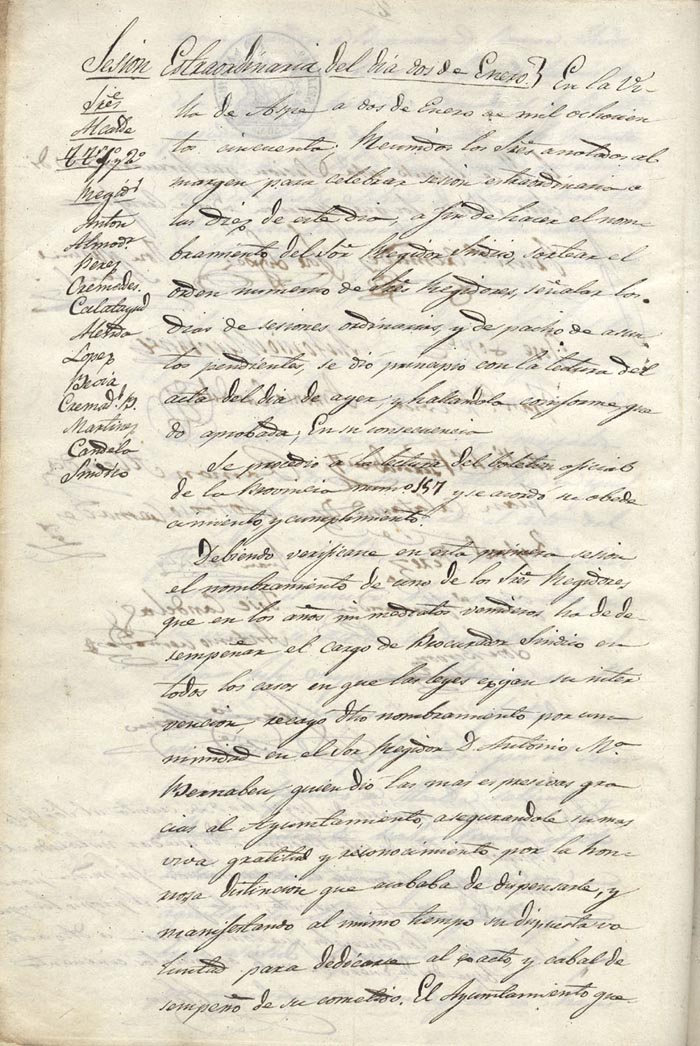 Sesion Extraordinaria del dia dos de Enero.} En la Vi-
lla de Aspe a dos de Enero de mil ochocien
tos cincuenta; Reunidos los Sres anotados al
margen para celebrar sesion estraordinaria a
las diez de este dia, a fin de hacer el nom-
bramiento del Sor Regidor Sindico, sortear el
orden numerico de Sres Regidores, señalar los
dias de sesiones ordinarias, y despacho de asun-
tos pendientes, se dió principio con la lectura del
acta del dia de ayer, y hallandola conforme, que
dó aprobada; En su consecuencia
Sres
Alcalde
Ttes 1º y 2º
Regidrs
Anton
Almodr
Perez
Cremades
Calatayud
Merida
Lopez
Botia
Cremads B.
Martinez
Candela
Sindico
Se procedió a la lectura del boletin oficial
de la Provincia numo 157 y se acordó su obede
cimiento y cumplimiento.
Debiendo verificarse en esta primera sesion
el nombramiento de uno de los Sres Regidores
que en los años inmediatos venideros ha de de-
sempeñar el cargo de Procurador Sindico en
todos los casos en que las leyes exijan su inter
vencion, recayó dho nombramiento por una
nimidad en el Sor Regidor D. Antonio Ma
Bernabeu, quien dió las mas espresivas gra
cias al Ayuntamiento, asegurandole su mas
viva gratitud y reconocimiento por la hon-
rosa distincion que acababa de dispensarle, y
manifestando al mismo tiempo su dispuesta vo
luntad para dedicarse al exacto, y cabal de
sempeño de su cometido. El Ayuntamiento que-